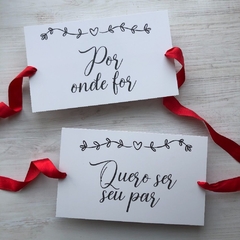 Por
onde for
Quero ser
seu par